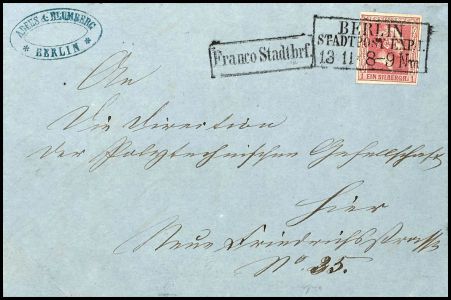 ARONS & BLUMBERG
* BERLIN *
Franco Stadtbrf.
BERLIN
STADTPOST-EXP. I.
13 11 8-9 Nm
EIN SILBERGR.
An
Die Direction
der Polytechnischen Gesellschaft
Hier
Neue Friedrichsstrasse
No 35.